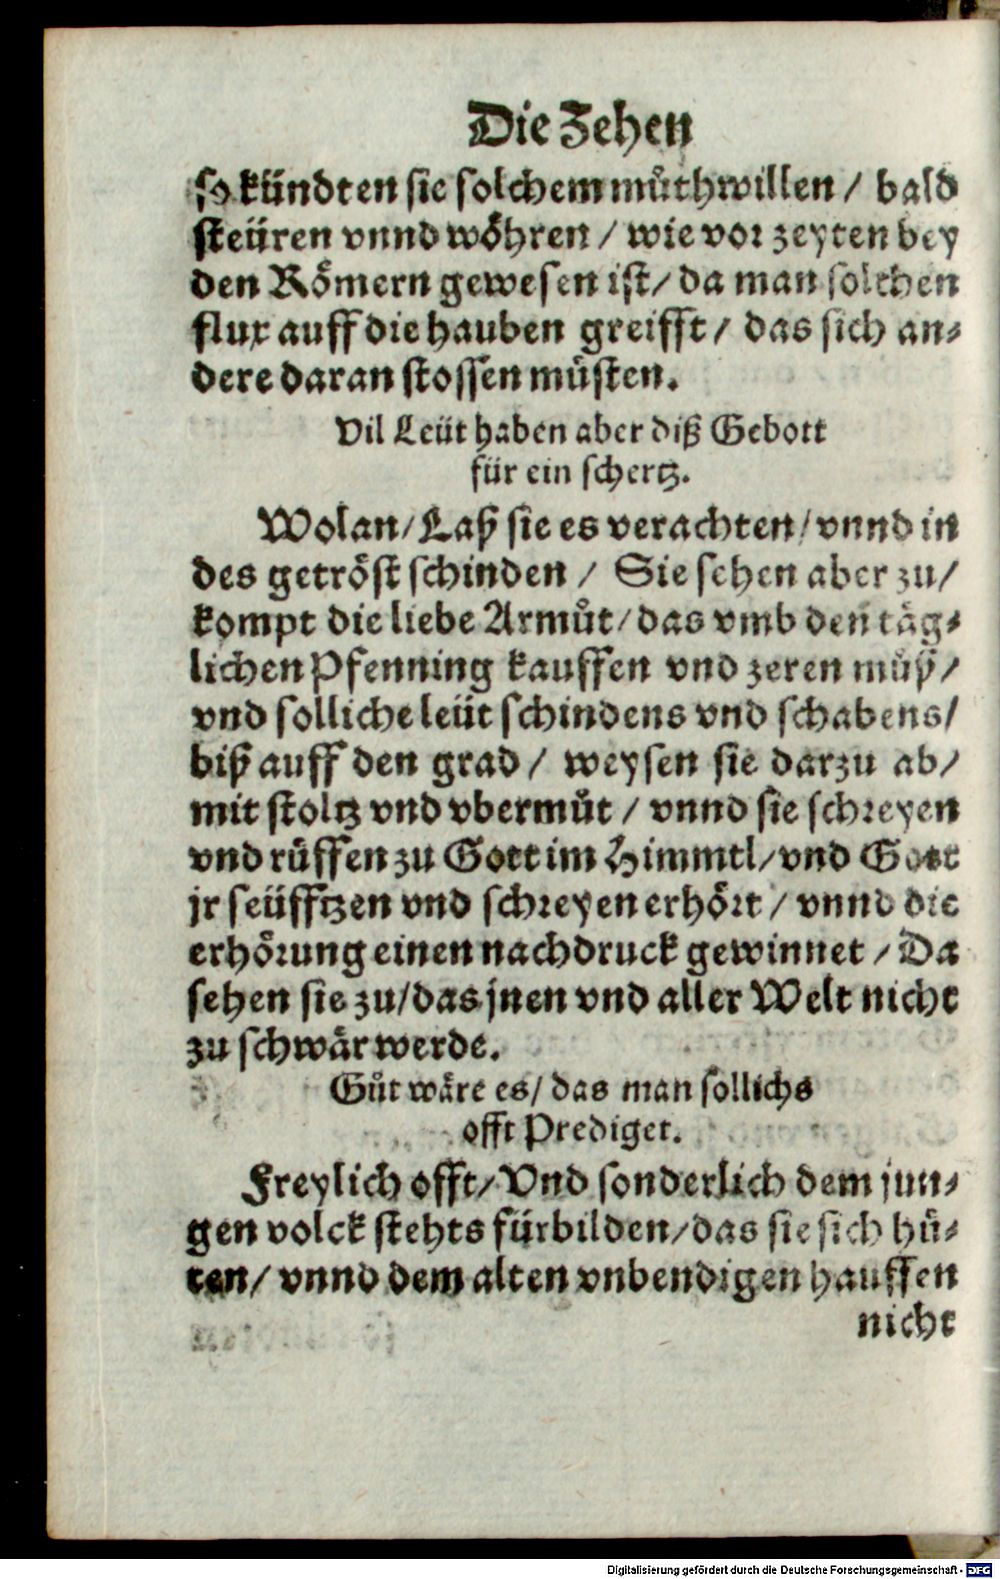 Die Zehen
so kündten sie solchem můthwillen / bald
steüren vnnd wöhren / wie vor zeyten bey
den Römern gewesen ist / da man solchen
flux auff die hauben greifft / das sich an⸗
dere daran stossen müsten.
Vil Leüt haben aber diß Gebott
für ein schertz.
Wolan / Laß sie es verachten / vnnd in
des getröst schinden / Sie sehen aber zu /
kompt die liebe Armůt / das vmb den täg⸗
lichen Pfenning kauffen vnd zeren můß /
vnd solliche leüt schindens vnd schabens /
biß auff den grad / weysen sie darzu ab /
mit stoltz vnd vbermůt / vnnd sie schreyen
vnd růffen zu Gott im Himmel / vnd Gott
jr seüfftzen vnd schreyen erhört / vnnd die
erhörung einen nachdruck gewinnet / Da
sehen sie zu / das jnen vnd aller Welt nicht
zu schwär werde.
Gůt wäre es / das man sollichs
offt Prediget.
Freylich offt / Vnd sonderlich dem jun⸗
gen volck stehts fürbilden / das sie sich hü⸗
ten / vnnd dem alten vnbendigen hauffen
nicht
Digitalisierung gefördert durch die Deutsche Forschungsgemeinschaft - DFG